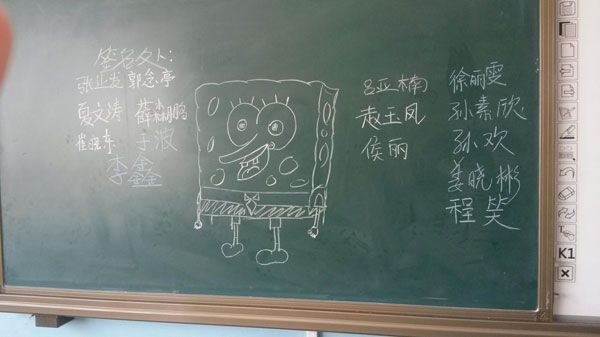 签名处:
张业发 郭念亭
夏文涛 薛林鹏
崔晓东 于波
李鑫
吕亚楠
赵玉凤
侯丽
徐丽雯
孙素欣
孙欢
姜晓彬
程笑
K1